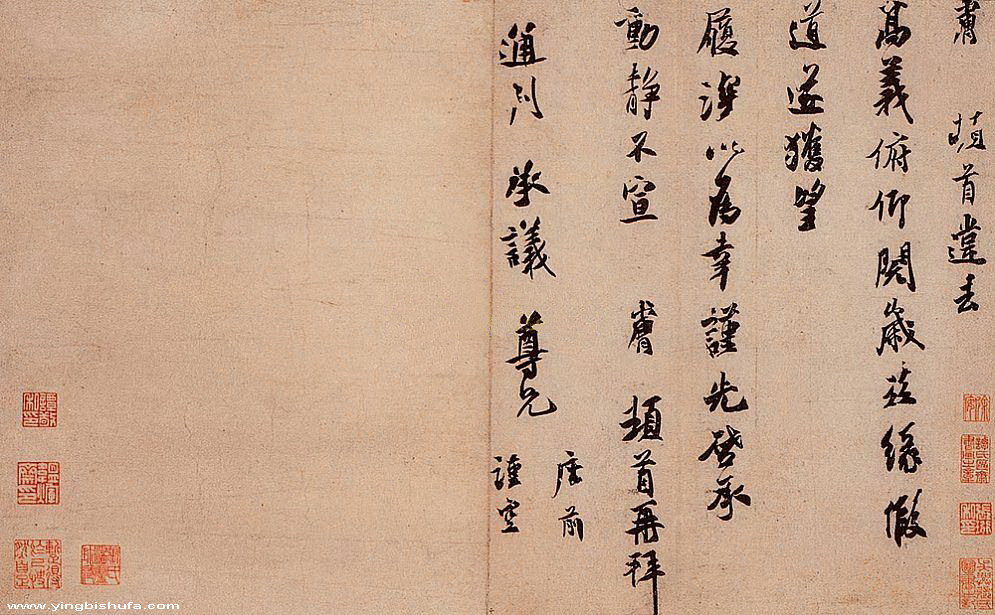 膚　頓首違去
高義俯仰閱歲茲緣假
道遂獲望
履深以為幸謹先啓承
動靜不宣　膚　頓首再拜
通判　承議　尊兄
座前
謹空
www.yingbishufa.com